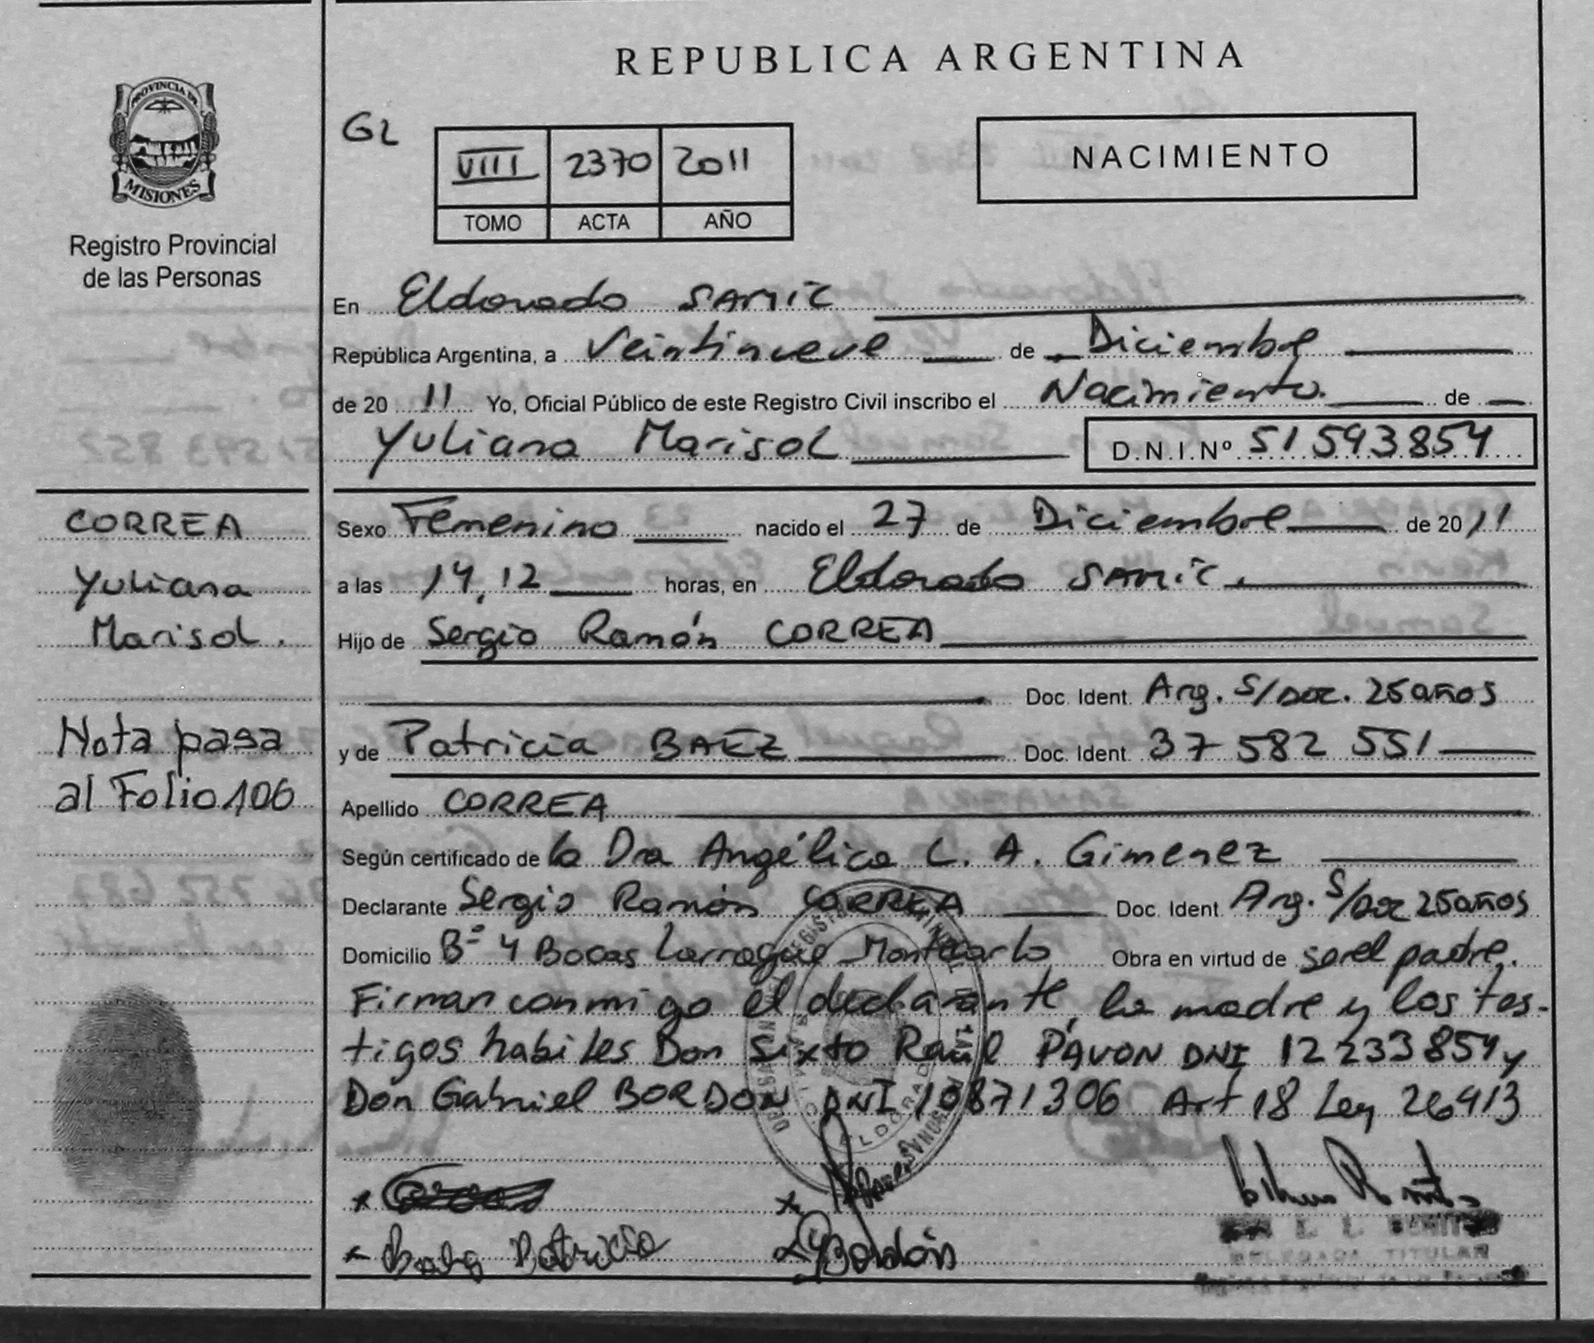 REPUBLICA ARGENTINA
PROVINCIA DE
MISIONES
Registro Provincial
de las Personas
GL
VIII 2370 2011
TOMO ACTA AÑO
NACIMIENTO
En Eldorado SAMIC
República Argentina, a Veintinueve de Diciembre
de 20 11 Yo, Oficial Público de este Registro Civil inscribo el Nacimiento. de
Yuliana Marisol D.N.I.Nº 51 593 854
CORREA
Yuliana
Marisol.
Nota pasa
al Folio 106
Sexo Femenino nacido el 27 de Diciembre de 20 11
a las 14,12 horas, en Eldorado SAMIC.
Hijo de Sergio Ramón CORREA
Doc. Ident. Arg. S/Doc. 25 años
y de Patricia BAEZ Doc. Ident. 37 582 551
Apellido CORREA
Según certificado de la Dra Angélica L. A. Gimenez
Declarante Sergio Ramón CORREA Doc. Ident. Arg. S/Doc 25 años
Domicilio Bº 4 Bocas Larrague Montecarlo Obra en virtud de ser el padre.
Firman conmigo el declarante, la madre y los tes-
tigos habiles Don Sixto Raúl PAVON DNI 12 233 854 y
Don Gabriel BORDON DNI 10871306 Art 18 Ley 26413
Patricia
Bordón
DELEGADA TITULAR